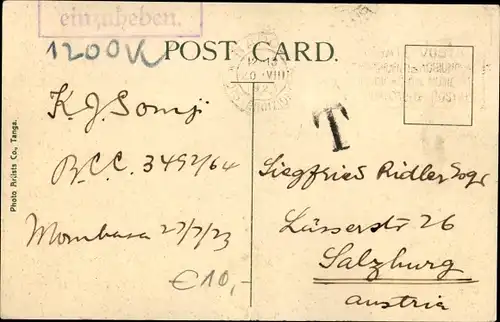 einzuheben.
1200K
POST CARD.
20 VIII
T
K J Somji
B.C.C. 3492/64
Mombasa 27/7/23
Siegfried Ridler
Lasserstr 26
Salzburg
Austria
€10,-
Photo Artists Co., Tanga.